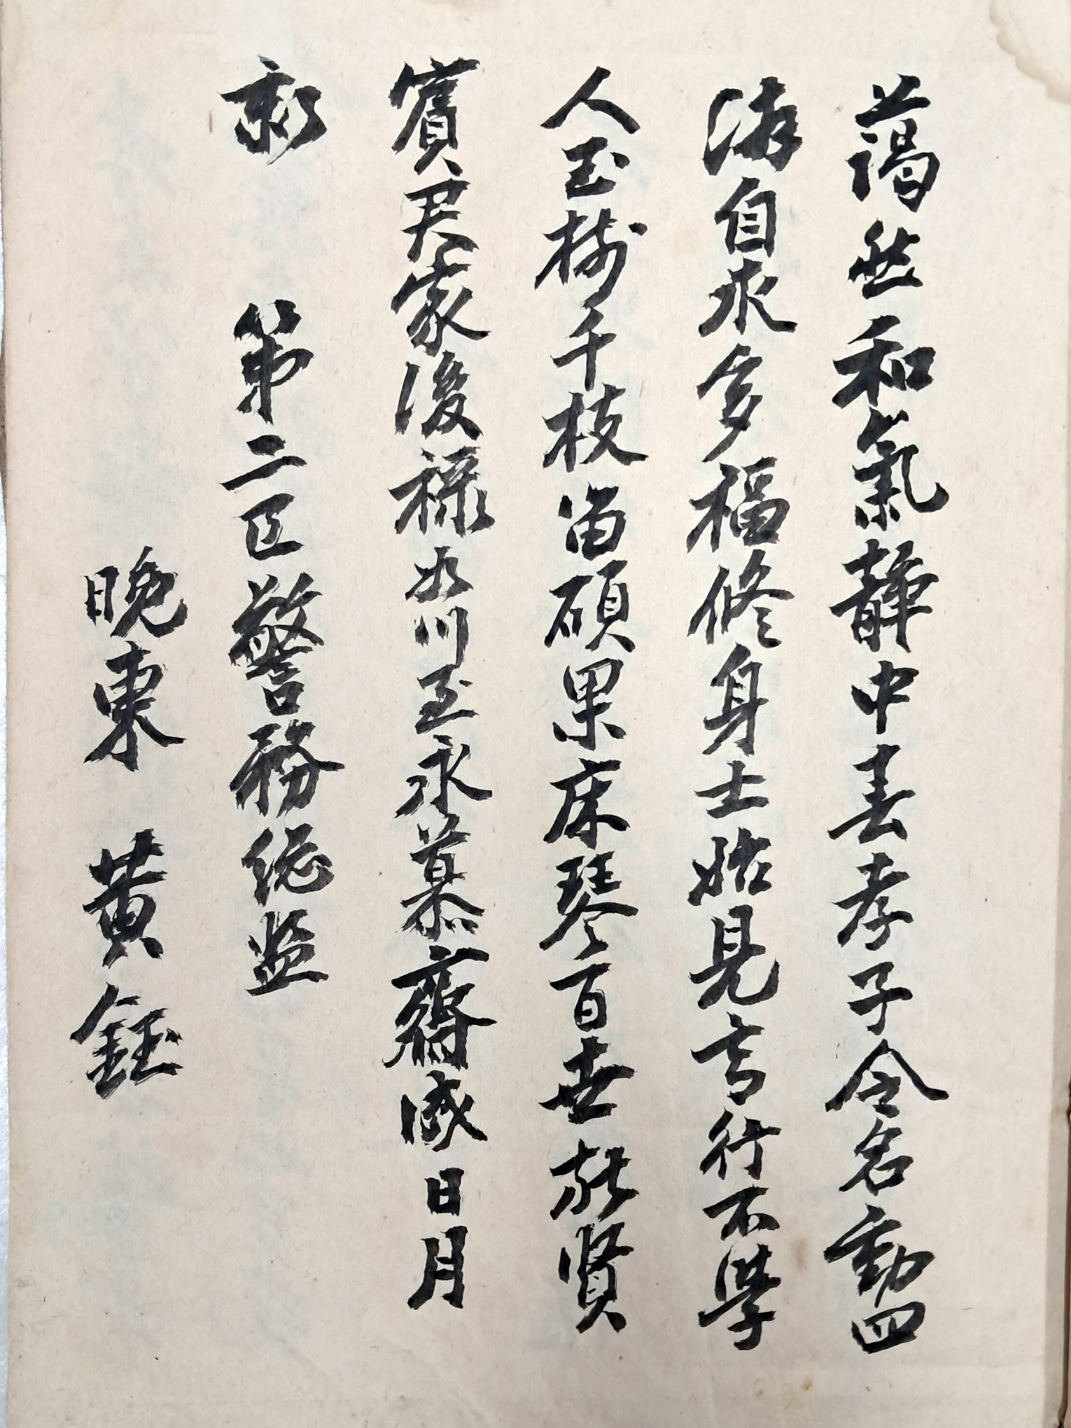 藹然和氣靜中春孝子令名動四
海自求多福修身士始見言行不學
人玉樹千枝留碩果床琴百世敬賢
賓君家後祿如川至永慕齋成日月
新　第二区警務總監
晚東　黃鈺